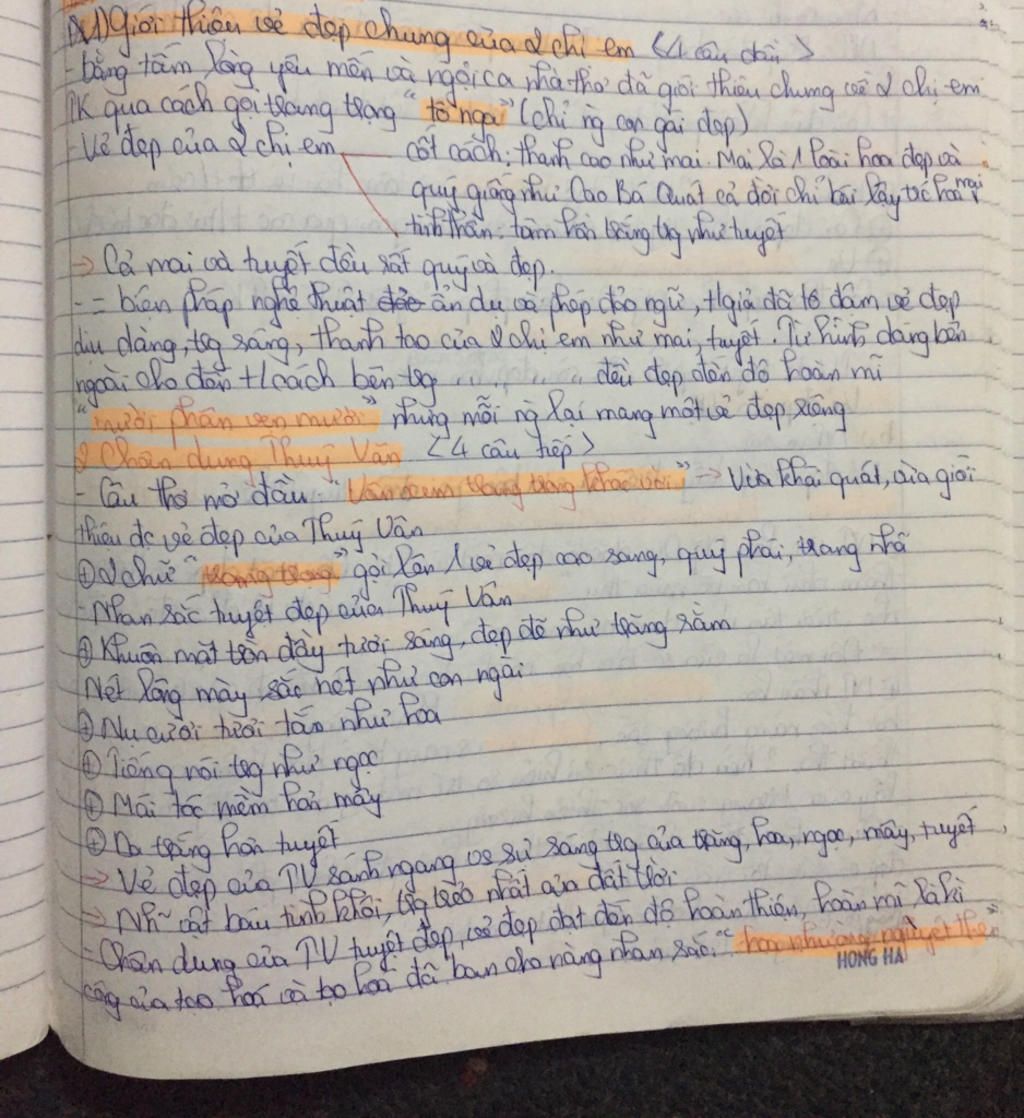 1) Giới thiệu vẻ đẹp chung của 2 chị em (4 câu đầu)
- bằng tấm lòng yêu mến và ngợi ca nhà thơ đã giới thiệu chung về 2 chị em
TK qua cách gọi trang trọng "tố nga" (chỉ ng con gái đẹp)
- Vẻ đẹp của 2 chị em cốt cách: thanh cao như mai. Mai là 1 loài hoa đẹp và
quý giống như Cao Bá Quát cả đời chỉ bái lậy trc hoa mai
tinh thần: tâm hồn trắng trg như tuyết
→ Cả mai và tuyết đều rất quý và đẹp.
- = biện pháp nghệ thuật ẩn dụ và phép đảo ngữ, t/giả đã tô đậm vẻ đẹp
dịu dàng, trg sáng, thanh tao của 2 chị em như mai, tuyết. Từ hình dáng bên
ngoài cho đến t/cách bên trg ... đều đẹp đến độ hoàn mĩ
"mười phân vẹn mười" nhưng mỗi ng lại mang một vẻ đẹp riêng
2 Chân dung Thuý Vân (4 câu tiếp)
- Câu thơ mở đầu: "Vân xem trang trọng khác vời" → Vừa khái quát, vừa giới
thiệu đc vẻ đẹp của Thuý Vân
⊕ 2 chữ "trang trọng" gợi lên 1 vẻ đẹp cao sang, quý phái, trang nhã
- Nhan sắc tuyệt đẹp của Thuý Vân
⊕ Khuôn mặt tròn đầy tươi sáng, đẹp đẽ như trăng rằm
Nét lông mày sắc nét như con ngài
⊕ Nụ cười tươi tắn như hoa
⊕ Tiếng nói trg như ngọc
⊕ Mái tóc mềm hơn mây
⊕ Da trắng hơn tuyết
→ Vẻ đẹp của TV sánh ngang vs sự sáng trg của trăng, hoa, ngọc, mây, tuyết,
→ Nh~ vật báu tinh khôi, trg trẻo nhất của đất trời
- Chân dung của TV tuyệt đẹp, vẻ đẹp đạt đến độ hoàn thiện, hoàn mĩ là kì
công của tạo hoá và tạo hoá đã ban cho nàng nhan sắc: "hoa nhường nguyệt thẹn"
HONG HA